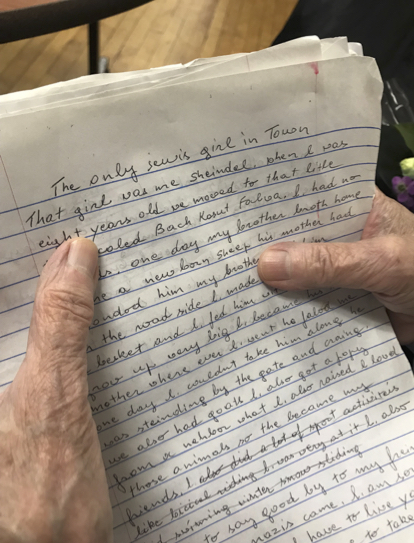 The only jewis girl in Town
That girl was me sheindel, when I was
eight years old we moved to that litle
coled Back Kosut Falwa. I had no
one day my brother broth home
me a new born sheep his mother had
andond him my brother
the road side I made
besket and I fed him
grow up very big I became his
mother where ever I went he folod me
one day I wouldnt take him along he
was steinding by the gate and craing.
we also had goats I also got a popy
from a nehbor what I also raised I loved
those animals so the became my
friends. I also did a lot of spoot activiteis
like bicical riding I was very at it I also
swiming winter snow sliding
to say good by to my
nazis came. I am so
have to live
to take